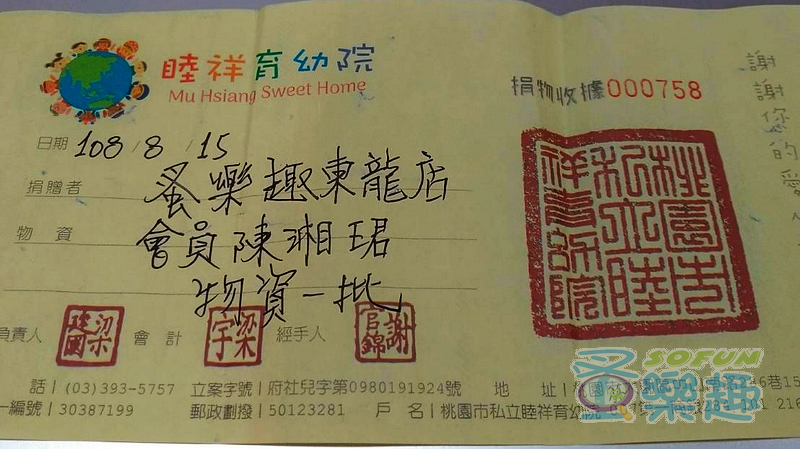 睦祥育幼院
Mu Hsiang Sweet Home
捐物收據000758
謝謝您的愛
日期 108/8/15
捐贈者 蚤樂趣東龍店
物資 會員陳湘珺
物資一批
桃園市私立睦祥育幼院
負責人 會計 經手人
話 (03)393-5757 立案字號 府社兒字第0980191924號 地 址
一編號 30387199 郵政劃撥 50123281 戶 名 桃園市私立睦祥育幼院
SOFUN
蚤樂趣